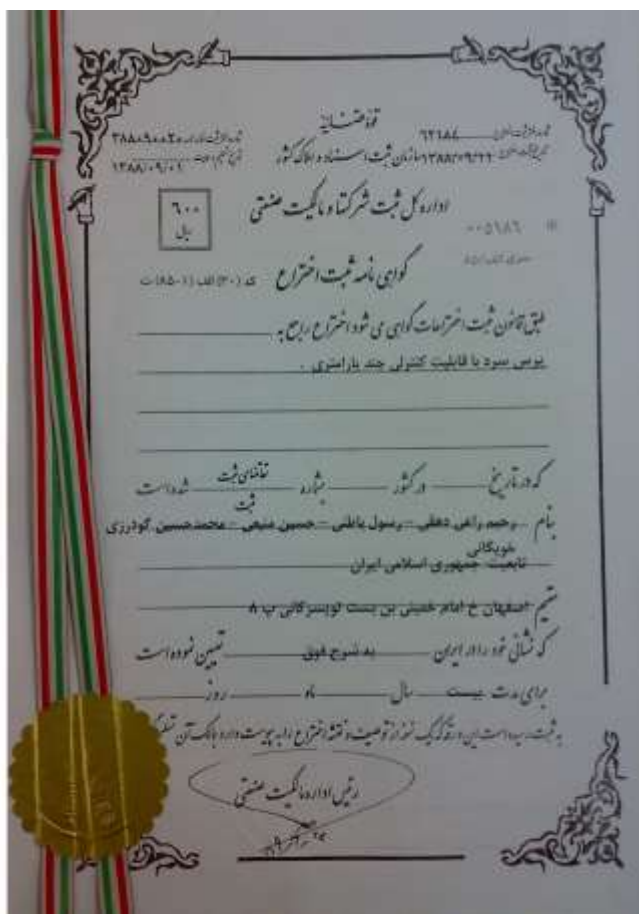 قوه قضائیه
شماره ثبت اختراع ۶۲۱۸۴
شماره ثبت اظهارنامه ۳۸۸۰۹۰۰۲۰
تاریخ ثبت اختراع ۱۳۸۸/۰۹/۲۲ سازمان ثبت اسناد و املاک کشور
۱۳۸۸/۰۹/۰۱
اداره کل ثبت شرکتها و مالکیت صنعتی
۶۰۰
ریال
۰۰۵۶۸۶
گواهی نامه ثبت اختراع
کد (۳۰) الف (۱-۸۵) ت
طبق قانون ثبت اختراعات گواهی می شود اختراع راجع به
پرس سرد با قابلیت کنترلی چند پارامتری .
که در تاریخ در کشور بشماره تقاضای ثبت شده است
ثبت
بنام رحیم راعی دهقی - رسول باطنی - حسین منیعی - محمدحسین گودرزی
خویگانی
تابعیت جمهوری اسلامی ایران
مقیم اصفهان خ امام خمینی بن بست تویسرکانی پ ۸
که نشانی خود را در ایران به شرح فوق تعیین نموده است
برای مدت بیست سال ماه روز
به ثبت رسیده است این ورقه که یک نسخه از توصیف و نقشه اختراع را به پیوست دارد بمالک آن
رئیس اداره مالکیت صنعتی